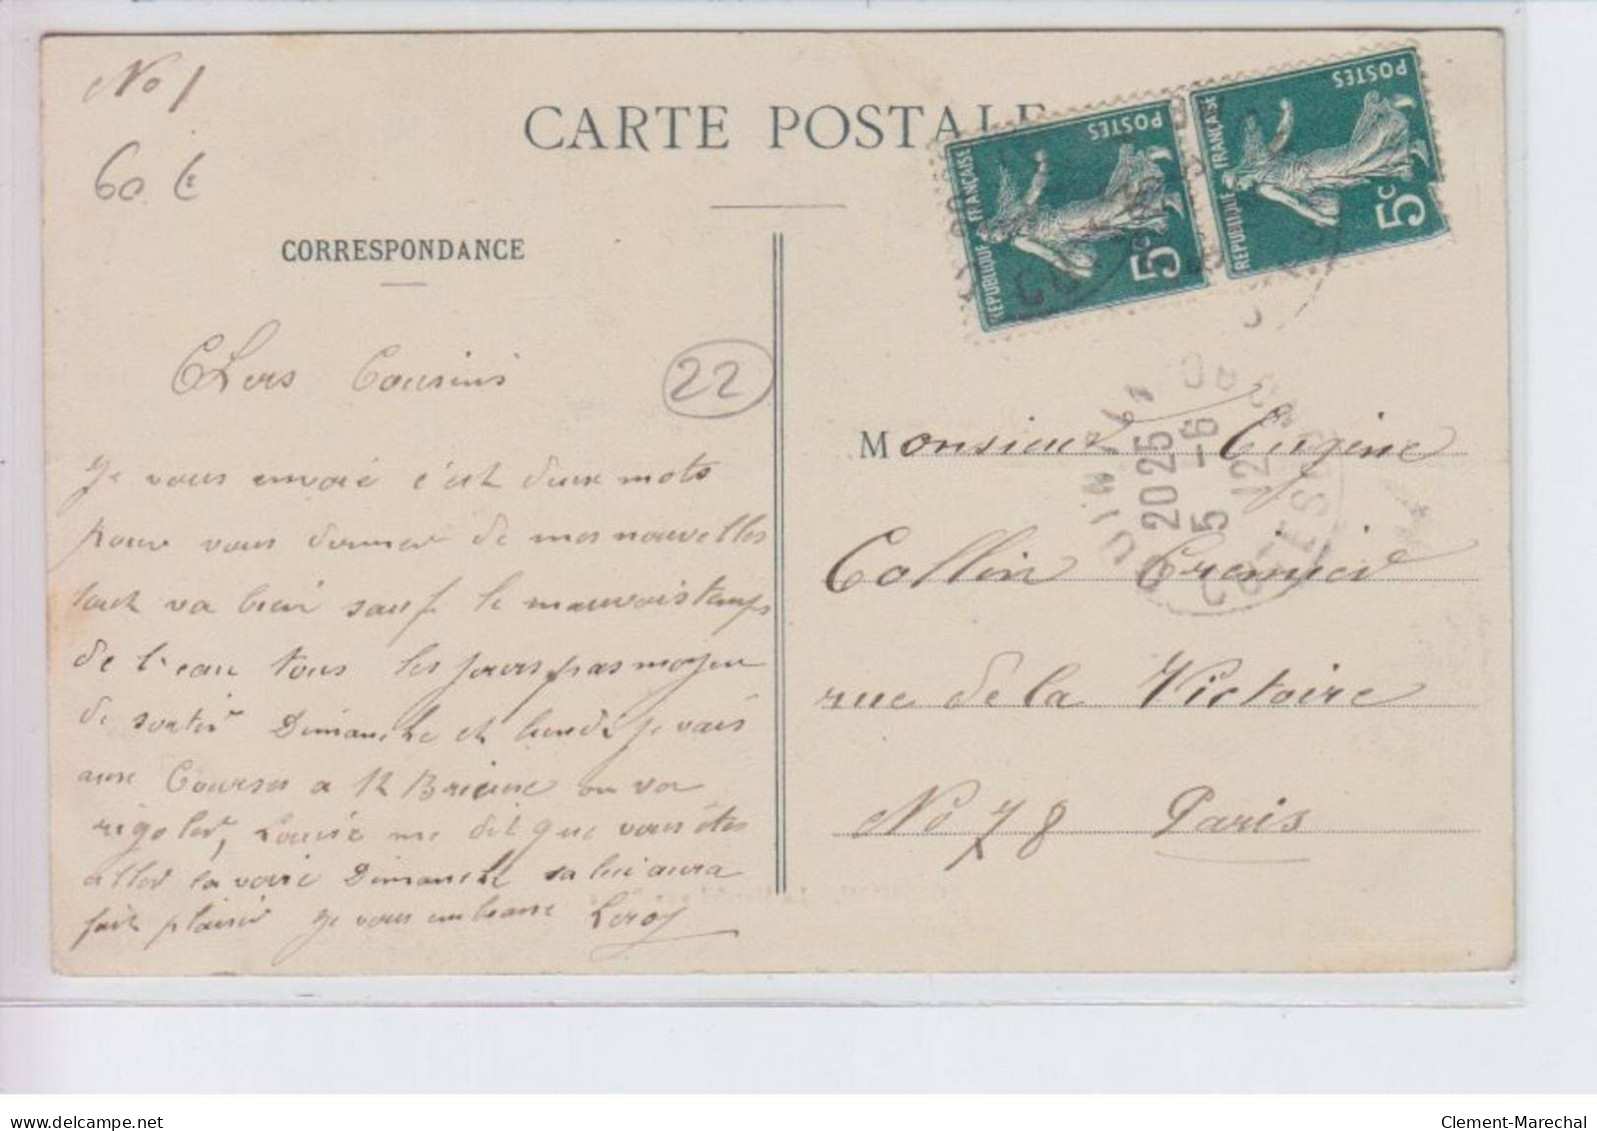 No 1
60 €
CARTE POSTALE
CORRESPONDANCE
Chers Cousins
22
Je vous envoie c'est deux mots
pour vous donner de mes nouvelles
tout va bien sauf le mauvois temps
de l'eau tous les jours pas moyen
de sortir Dimanche et lundi je vais
aux Courses a St Brieuc on va
rigoler, Louise me dit que vous êtes
aller la voire Dimanche sa lui aura
fait plaisir je vous embrasse Leroy
POSTES
REPUBLIQUE FRANÇAISE
5c
POSTES
REPUBLIQUE FRANÇAISE
5c
QUINTIN
20 25
5 -6
12
COTES DU NORD
Monsieur Eugène
Collin Cremier
rue de la Victoire
No 78 Paris
Clement-Marechal
delcampe.net